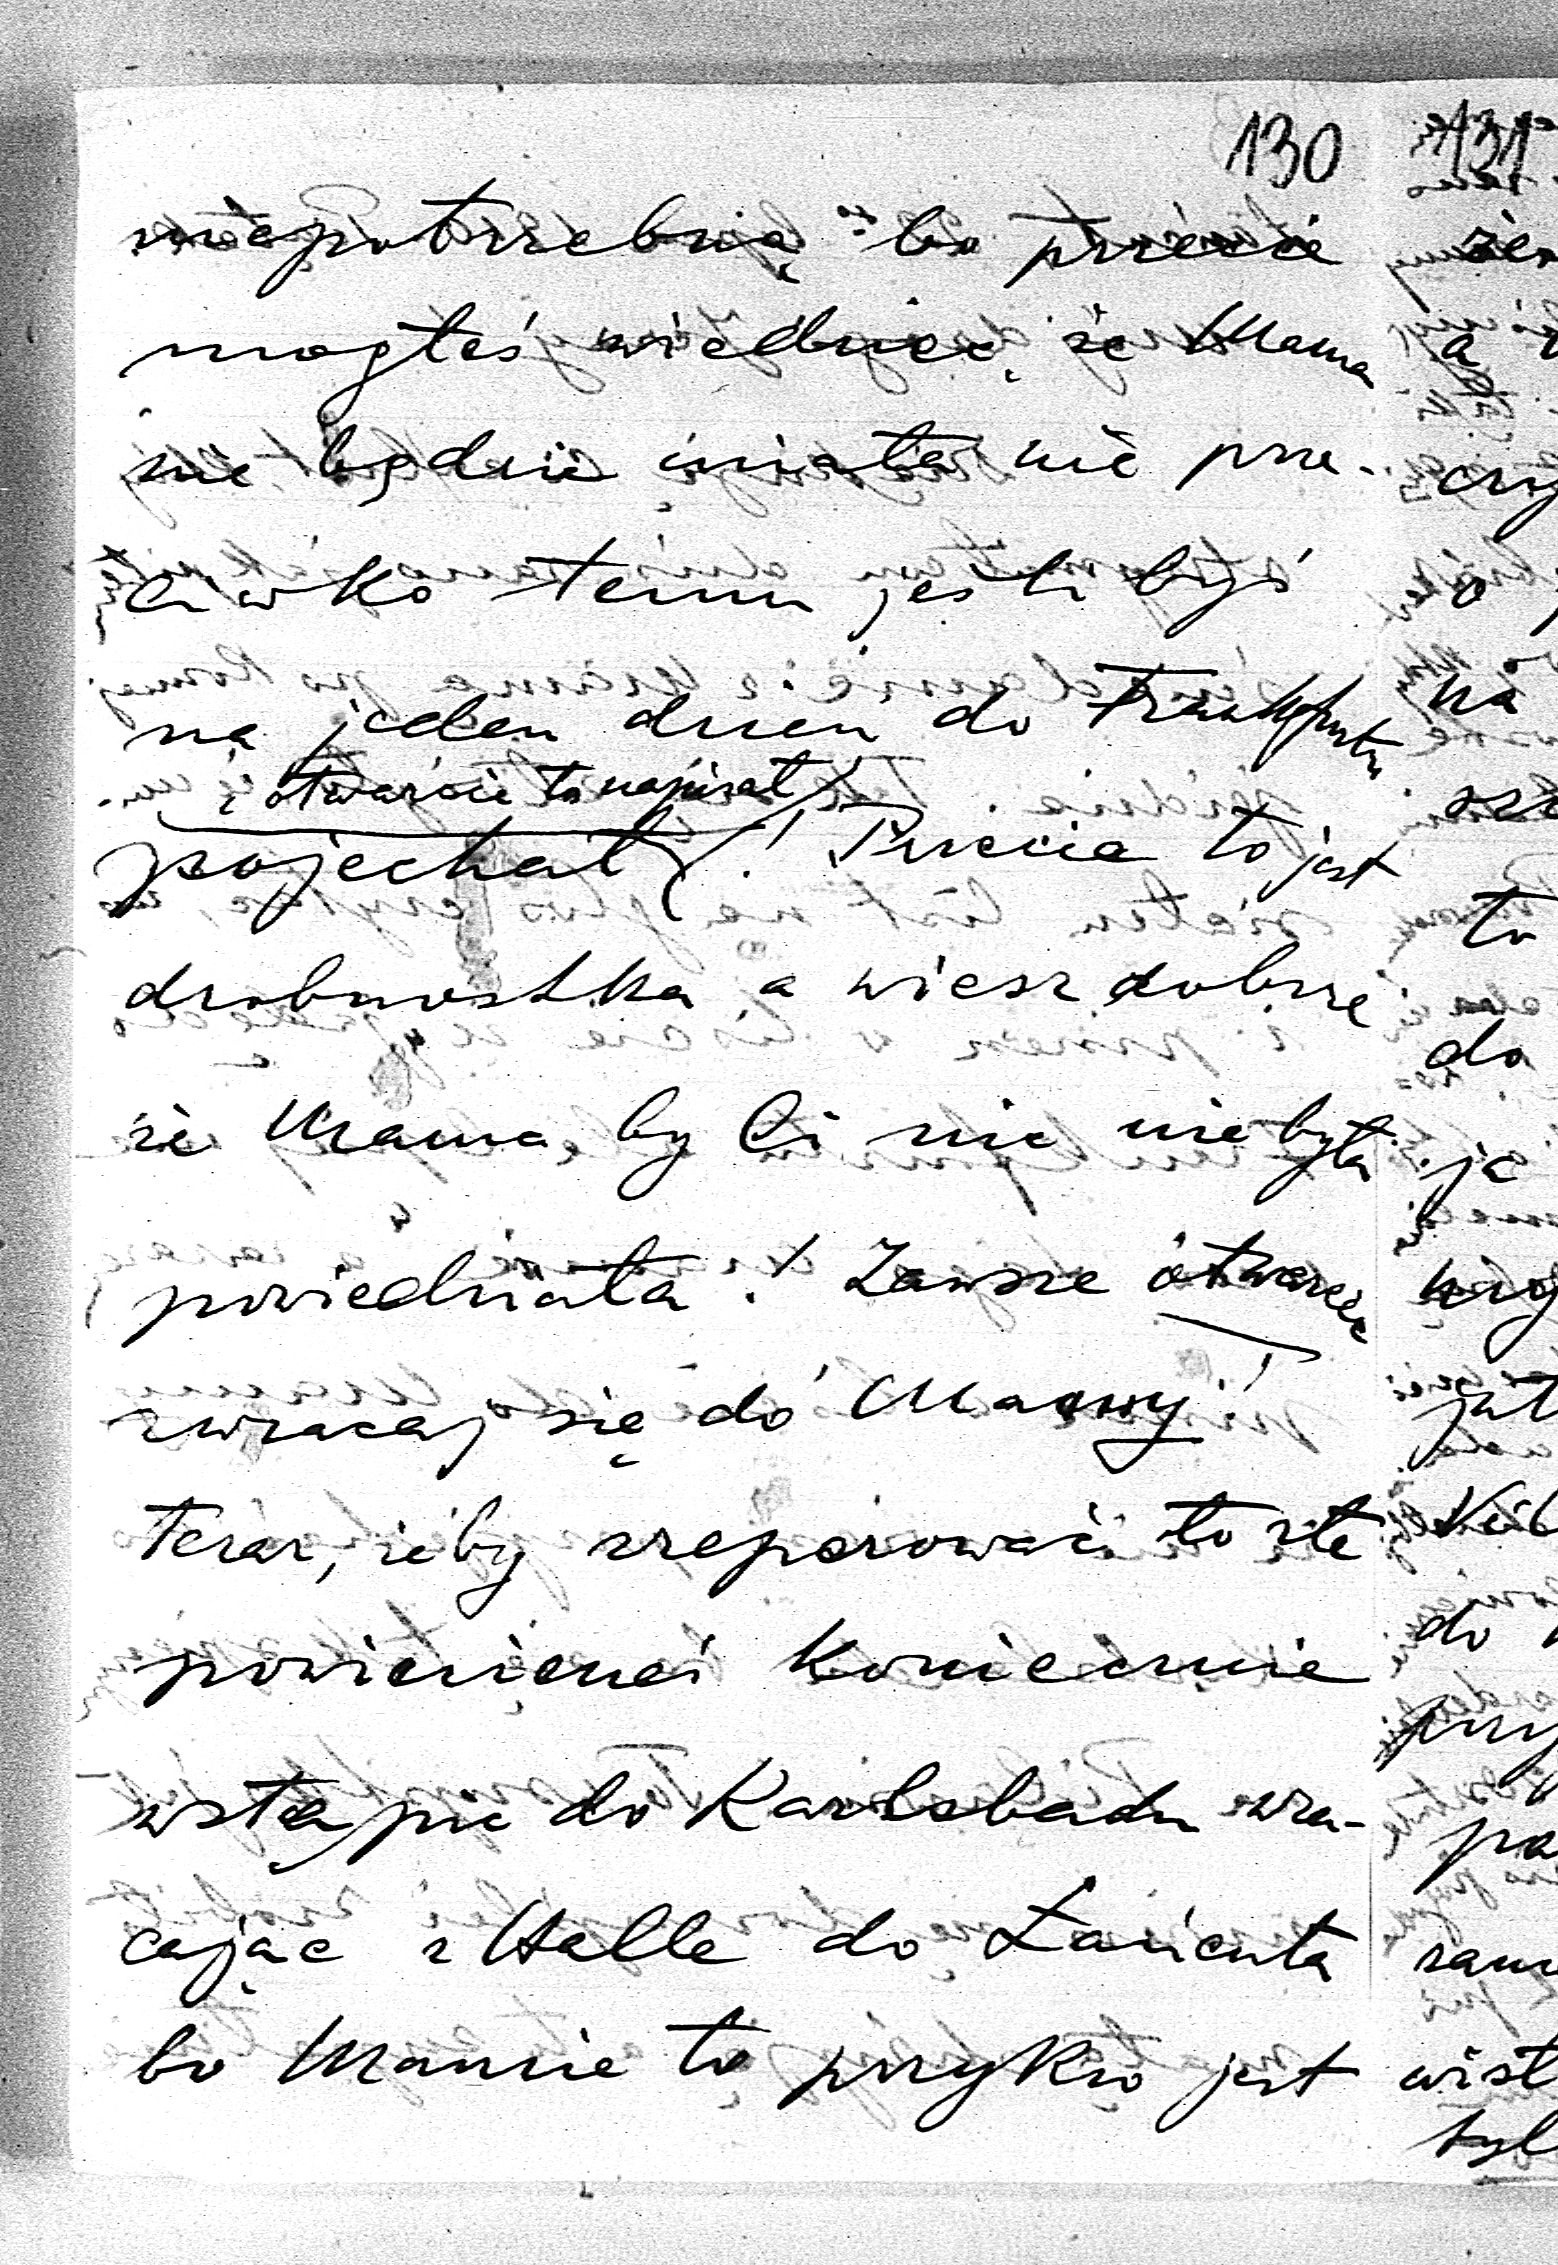 130
niepotrzebną bo przecie
mogłeś wiedzieć, że Mama
nie będzie miała nic prze-
ciwko temu jeślibyś
na jeden dzień do Frankfurtu
i otwarcie to napisał
pojechał! Przecie to jest
drobnostka a wiesz dobrze
że Mama by Ci nic nie była
powiedziała! Zawsze otwarcie
zwracaj się do Mamy!
Teraz, żeby zreperować to źle
powinieneś koniecznie
wstąpić do Karlsbadu wra-
cając z Halle do Łańcuta
bo Mamie to przykro jest
131
a
o
na
to
do
je
do